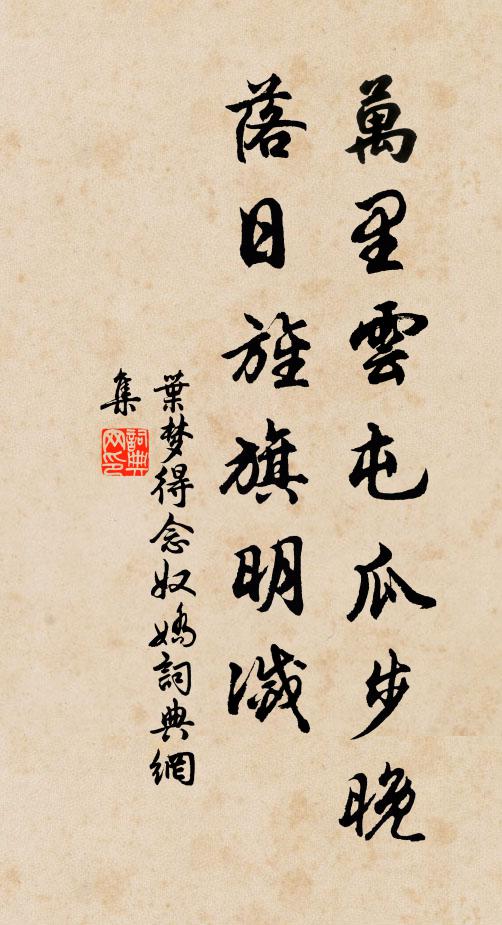 萬里雲屯瓜步晚
落日旌旗明滅
葉梦得念奴嬌詞典網
集
詞典网印